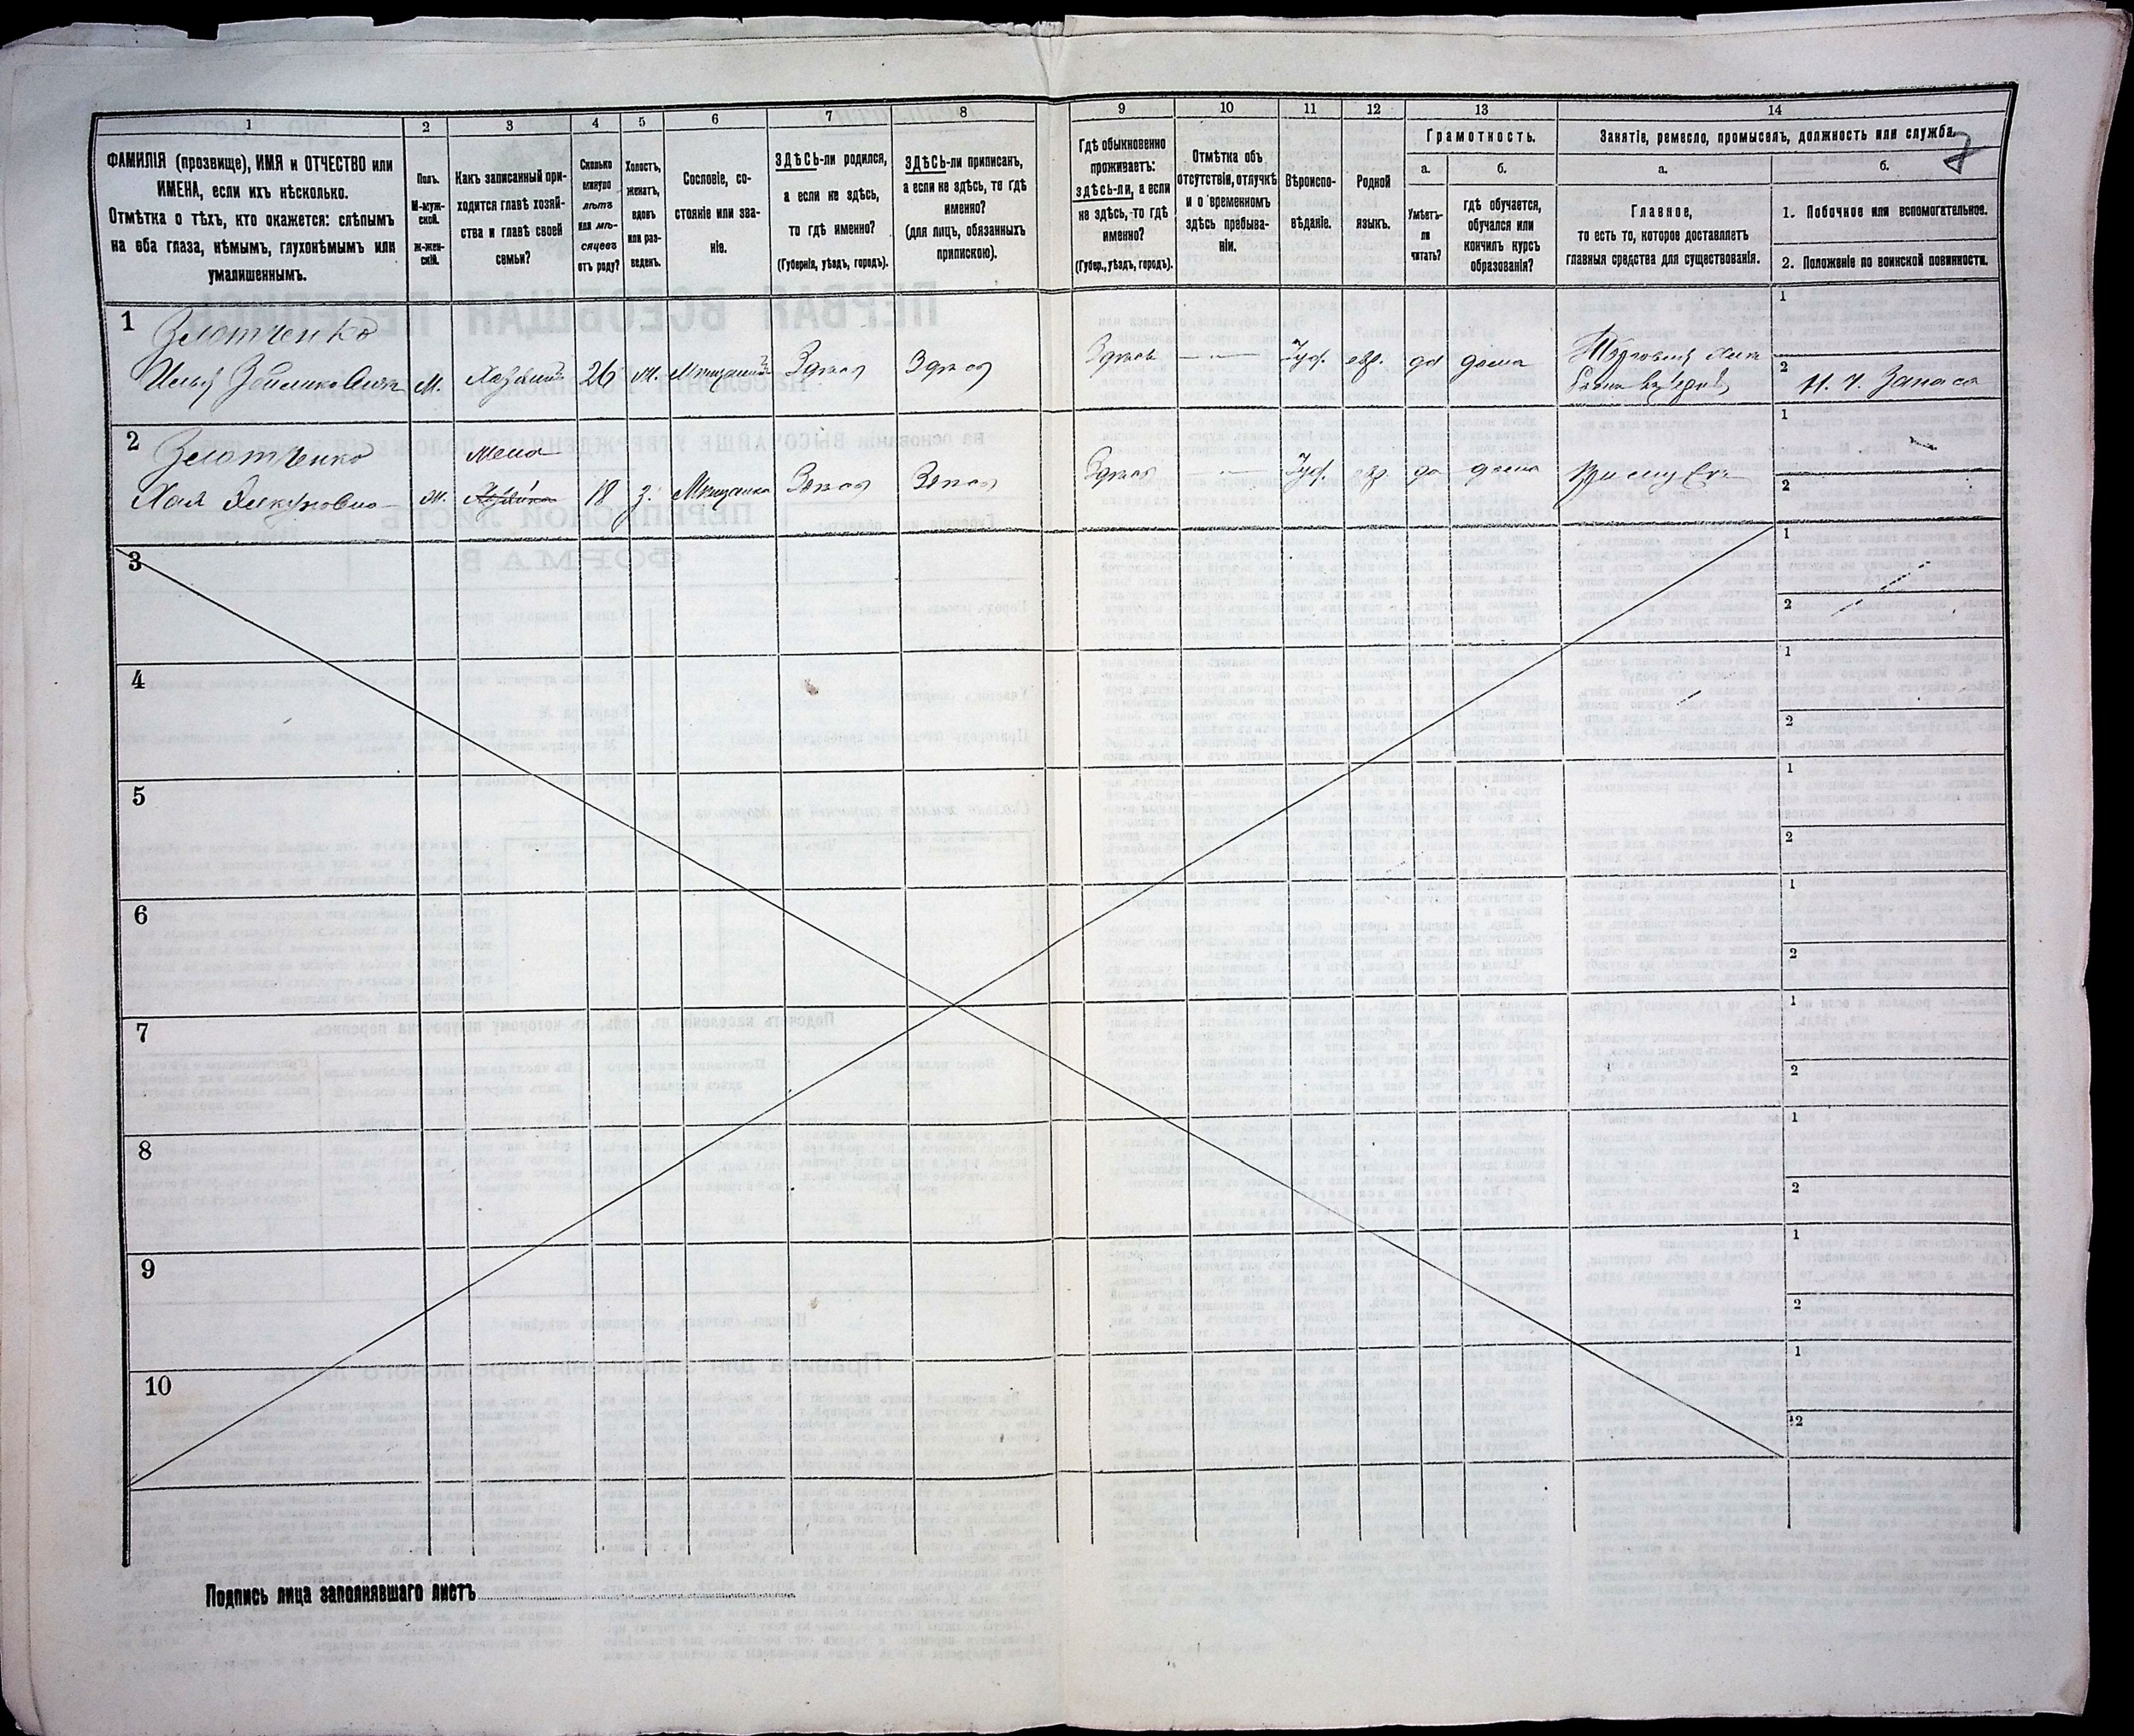 1
2
3
4
5
6
7
8
9
10
11
12
13
14
ФАМИЛІЯ (прозвище), ИМЯ и ОТЧЕСТВО или
ИМЕНА, если ихъ нѣсколько.
Отмѣтка о тѣхъ, кто окажется: слѣпымъ
на оба глаза, нѣмымъ, глухонѣмымъ или
умалишеннымъ.
Полъ.
М-муж-
ской.
Ж-жен-
скій.
Какъ записанный при-
ходится главѣ хозяй-
ства и главѣ своей
семьи?
Сколько
минуло
лѣтъ
или мѣ-
сяцевъ
отъ роду?
Холостъ,
женатъ,
вдовъ
или раз-
веденъ.
Сословіе, со-
стояніе или зва-
ніе.
ЗДѢСЬ-ли родился,
а если не здѣсь,
то гдѣ именно?
(Губернія, уѣздъ, городъ).
ЗДѢСЬ-ли приписанъ,
а если не здѣсь, то гдѣ
именно?
(для лицъ, обязанныхъ
припискою).
Гдѣ обыкновенно
проживаетъ:
здѣсь-ли, а если
не здѣсь, то гдѣ
именно?
(Губер., уѣздъ, городъ).
Отмѣтка объ
отсутствіи, отлучкѣ
и о временномъ
здѣсь пребыва-
ніи.
Вѣроиспо-
вѣданіе.
Родной
языкъ.
Грамотность.
а.
б.
Умѣетъ-
ли
читать?
гдѣ обучается,
обучался или
кончилъ курсъ
образованія?
Занятіе, ремесло, промыселъ, должность или служба.
8
а.
б.
Главное,
то есть то, которое доставляетъ
главныя средства для существованія.
1. Побочное или вспомогательное.
2. Положеніе по воинской повинности.
1
Золотченко
М.
Хозяинъ
26
ж.
Мѣщанинъ
Здѣсь
Здѣсь
Здѣсь
Іуд.
евр.
да
дома
1
2
Н. Ч. Запаса
2
Золотченко
Хая
ж.
Жена
18
з.
Мѣщанка
Здѣсь
Здѣсь
Здѣсь
Іуд.
евр.
да
дома
При мужѣ
1
2
3
1
2
4
1
2
5
1
2
6
1
2
7
1
2
8
1
2
9
1
2
10
1
2
Подпись лица заполнявшаго листъ